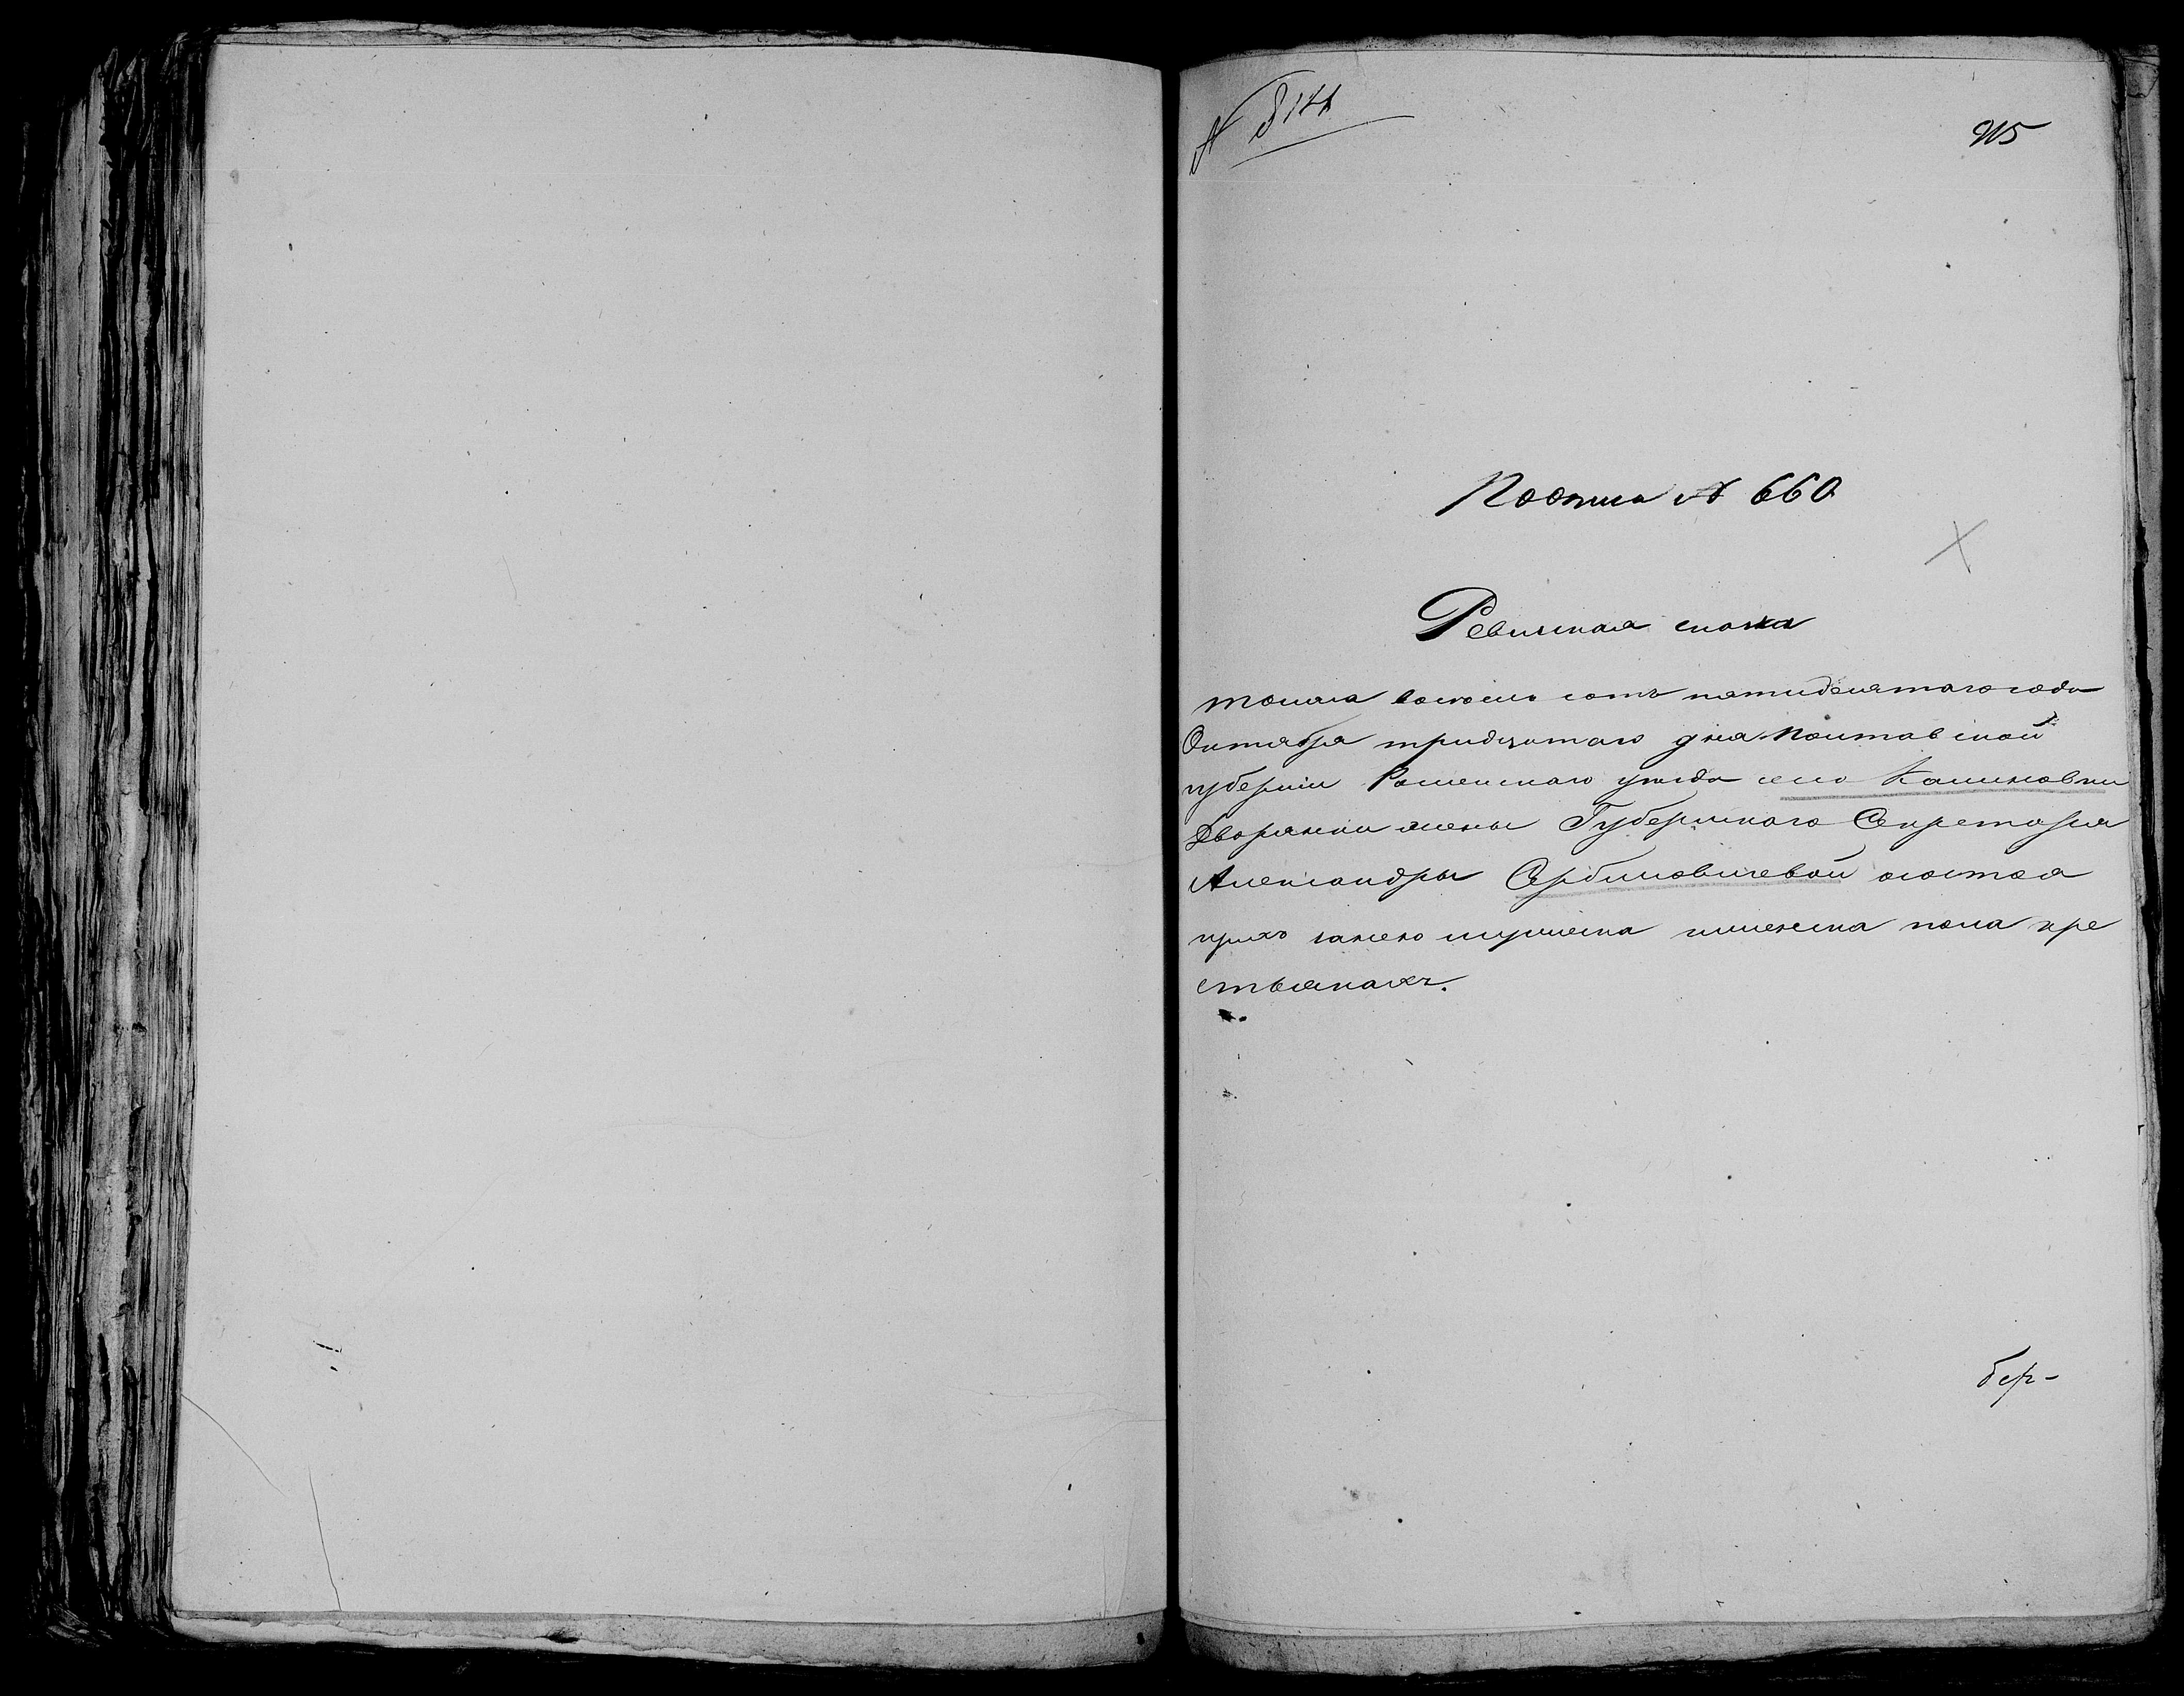 915
По описи № 660
Ревизская сказка
тысяча восемь сотъ пятидесятаго года
Октября тридцатаго дня Полтавской
губерніи Роменскаго уезда село Калиновки
Дворянки жены Губернскаго Секретаря
Александры Сербиновичевой осостоя
щихъ занею мужеска иженска пола кре
стьянахъ.